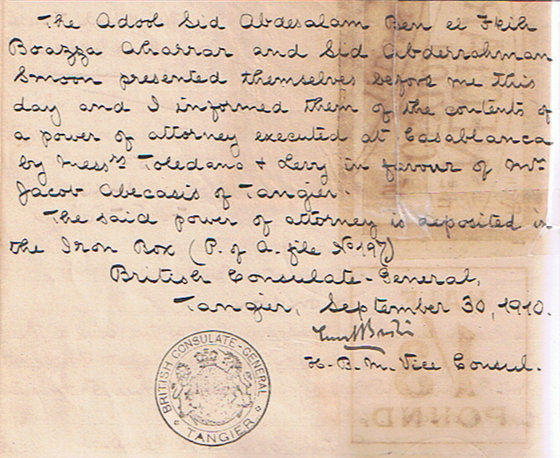 The Adool Sid Abdesalam Ben el Fkih
Boazza Aharrar and Sid Abderrahman
Smoon presented themselves before me this
day and I informed them of the contents of
a power of attorney executed at Casablanca
by Messrs Toledano & Levy in favour of Mr
Jacob Abecasis of Tangier.
The said power of attorney is deposited in
the Iron Box (P. of A. file No 197)
British Consulate-General,
Tangier, September 30, 1910.
H. B. M. Vice Consul.
BRITISH CONSULATE-GENERAL
TANGIER
POUND.